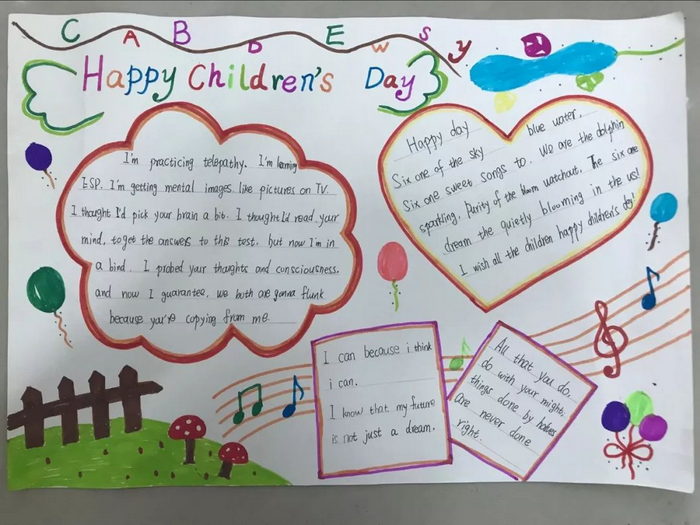 C A B D E W S Y
Happy Children's Day
I'm practicing telepathy. I'm learning
ESP. I'm getting mental images like pictures on TV.
I thought I'd pick your brain a bit. I thought I'd read your
mind, to get the answers to this test, but now I'm in
a bind. I probed your thoughts and consciousness,
and now I guarantee, we both are gonna flunk
because you're copying from me.
Happy day blue water,
Six one of the sky
Six one sweet songs to. We are the dolphin
sparkling, Purity of the bloom watchout, The six one
dream the quietly blooming in the us!
I wish all the children happy children's day!
I can because i think
i can.
I know that my future
is not just a dream.
All that you do,
do with your might,
things done by halves
are never done
right.